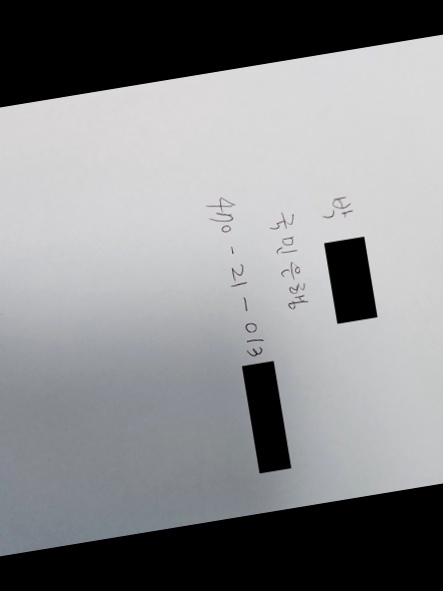 박
국민은행
470 - 21 - 013